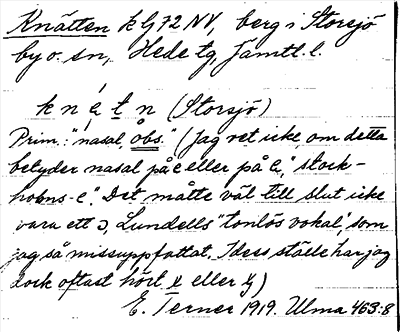 Knätten k G72 NV, berg i Storsjö
by o. sn, Hede tg, Jämtl. l.
k n é t n (Storsjö)
Prim.: "nasal, obs." (Jag vet icke, om detta
betyder nasal på e eller på "stock-
holms-e". Det måtte väl till slut icke
vara ett ɔ, Lundells "tonlös vokal", som
jag så missuppfattat, I dess ställe har jag
dock oftast hört eller
E. Terner 1919. Ulma 463:8